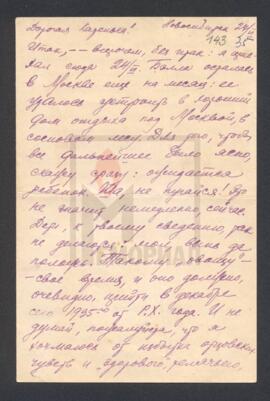 Дорогая Надюшка! Новосибирск 24/II
143 35
Итак, — впрочем, без итак: я приехал
сюда 24/II. Бэлла осталась
в Москве еще на месяц: ее
удалось устроить в хороший
дом отдыха под Москвой, в
сосновом лесу. Для того, чтобы
все дальнейшее было ясно,
скажу сразу: ожидается
ребенок. Да, не пугайся! Это
не значит немедленно, сейчас.
Дети, к твоему сведению, так
не делаются:
всему
свое время, и оно должно,
очевидно, прийти в декабре
1935 от Р.Х. года. И не
думай, пожалуйста, что я
от избытка отцовских
чувств и здорового,